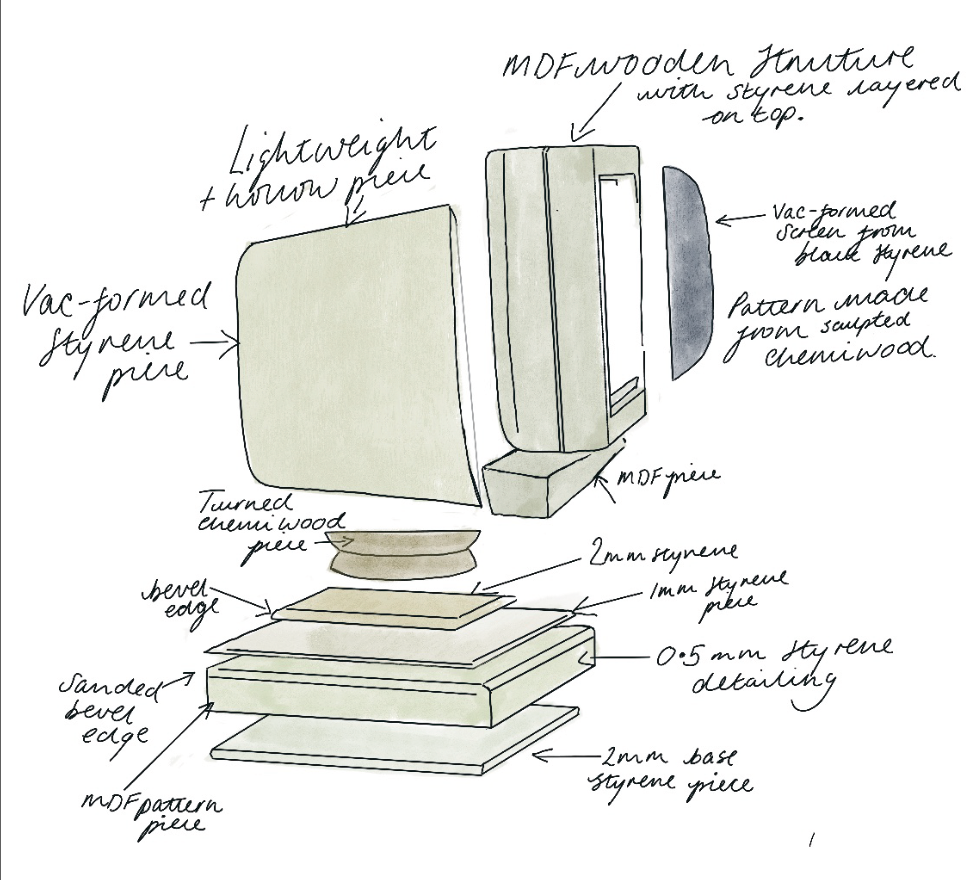 MDF wooden Struture
with styrene layered
on top.
Lightweight
+ hollow piece
Vac-formed
Screen from
black styrene
Pattern made
from sculpted
chemiwood.
Vac-formed
Styrene
piece
MDF piece
Turned
chemiwood
piece
2mm styrene
bevel
edge
1mm styrene
piece
0.5mm styrene
detailing
Sanded
bevel
edge
2mm base
styrene piece
MDF pattern
piece